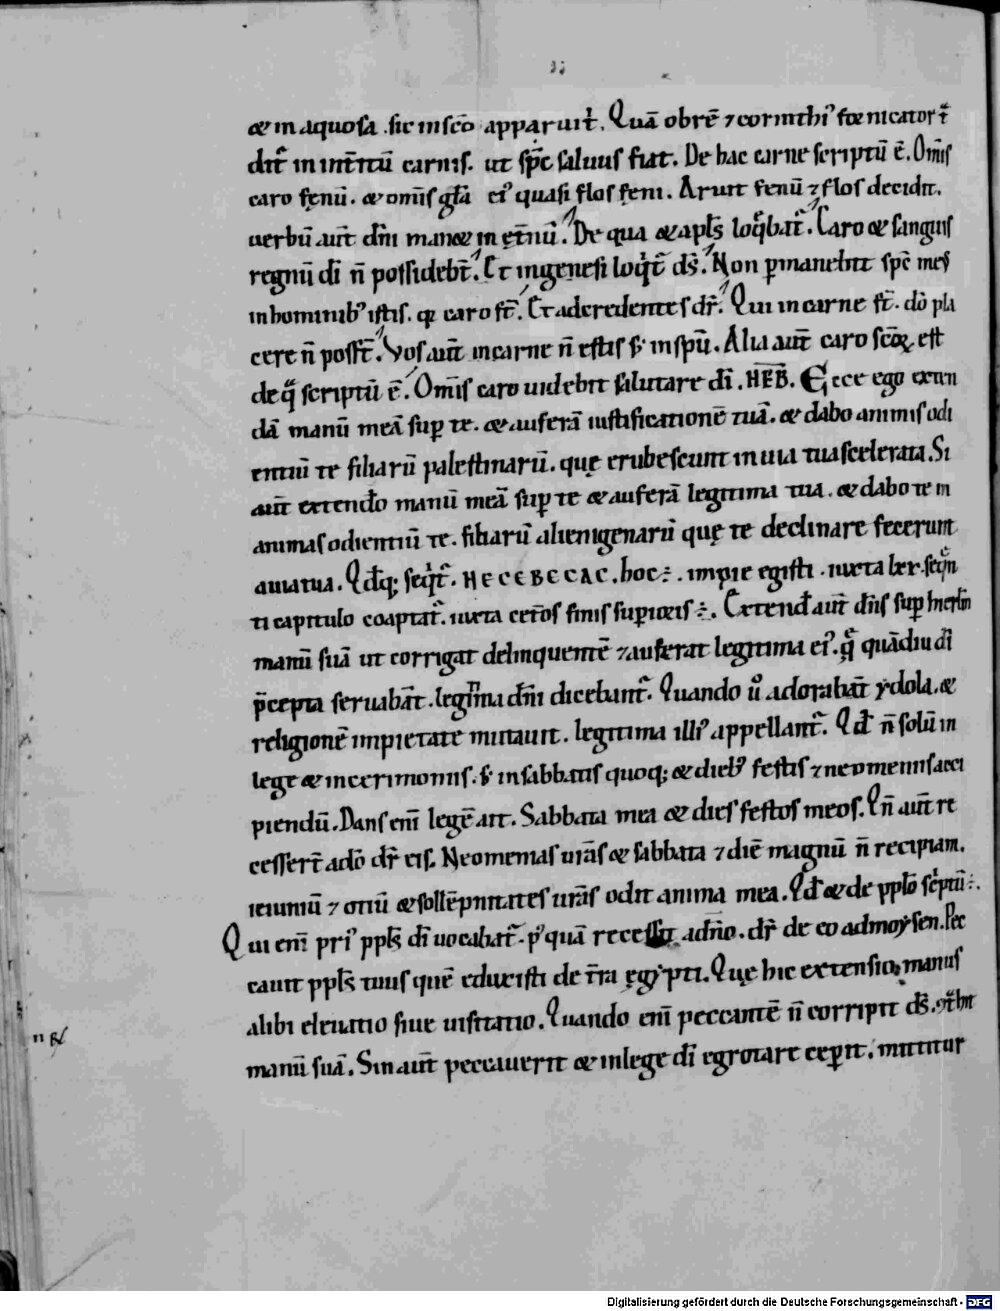 & in aquosa. sic in sc̄o apparuit. Quā obrē ⁊ corinthi᾽ fornicator t᷑
dit᷑ in int̄itū carnis. ut sp̄c saluus fiat. De hac carne scriptū ē. Om̄is
caro fęnū. & om̄is gl̄a ei᾽ quasi flos fęni. Aruit fenū ⁊ flos decidit.
uerbū aūt dn̄i man& in ęt̄nū. De qua & apl̄s loq̊bat᷑. Caro & sanguis
regnū dī n̄ possidebt̄. Et in genesi loqͥt᷑ ds̄. Non ꝑmanebit sp̄c mes
in hominib᾽ istis. qͥ caro st̄. Et ad credentes dr̄. Qui in carne st̄. dō pla
cere n̄ posst̄. Vos aūt in carne n̄ estis sꝫ in sp̄u. Alia aūt caro sc̄oꝝ est
de qͣ scriptū ē. Om̄is caro uidebit salutare dī. HEB̄. Ecce ego exten
dā manū meā suꝑ te. & auferā iustificationē tuā. & dabo animis odi
entiū te filiarū palestinarū. quę erubescunt in uia tua scelerata. Si
aūt extendo manū meā suꝑ te & auferā legitima tua. & dabo te in
animas odientiū te. filiarū alienigenarū quę te declinare fecerunt
a uia tua. Qd̄q; seqͥt᷑. HECEBECAC. hoc ē. impie egisti. iuxta lxx. seqn̄
ti capitulo coaptat᷑. iuxta cet̄os finis suꝑioris ē. Extend̄ aūt dn̄s suꝑ hierl̄m
manū suā ut corrigat delinquentē ⁊ auferat legitima ei᾽. qͣ quādiu dī
p̄cepta seruabāt. legitima dn̄i dicebant᷑. Quando ů adorabāt ydola. &
religionē impietate mutauit. legitima illi᾽ appellant᷑. Qd̄ n̄ solū in
lege & in cerimoniis. sꝫ in sabbatis quoq; & dieb᾽ festis ⁊ neomeniis acci
piendū. Dans enī legē ait. Sabbata mea & dies festos meos. Qn̄ aūt re
cessert̄ a dō dr̄ eis. Neomenias urās & sabbata ⁊ diē magnū n̄ recipiam.
ieiuniū ⁊ otiū & sollēpnitates urās odit anima mea. Qd̄ & de pplō sc̄ptū ē.
Qui enī pri᾽ ppls̄ dī uocabat᷑. p᾽quā recessit a dn̄o. dr̄ de eo ad moysen. Pec
cauit ppls̄ tuus quē eduxisti de t̄ra ęgypti. Quę hic extensio manus
alibi eleuatio siue uisitatio. Quando enī peccantē n̄ corripit ds̄. n̄ exthit
manū suā. Sin aūt peccauerit & in lege dī egrotare ceꝑit. mittitur